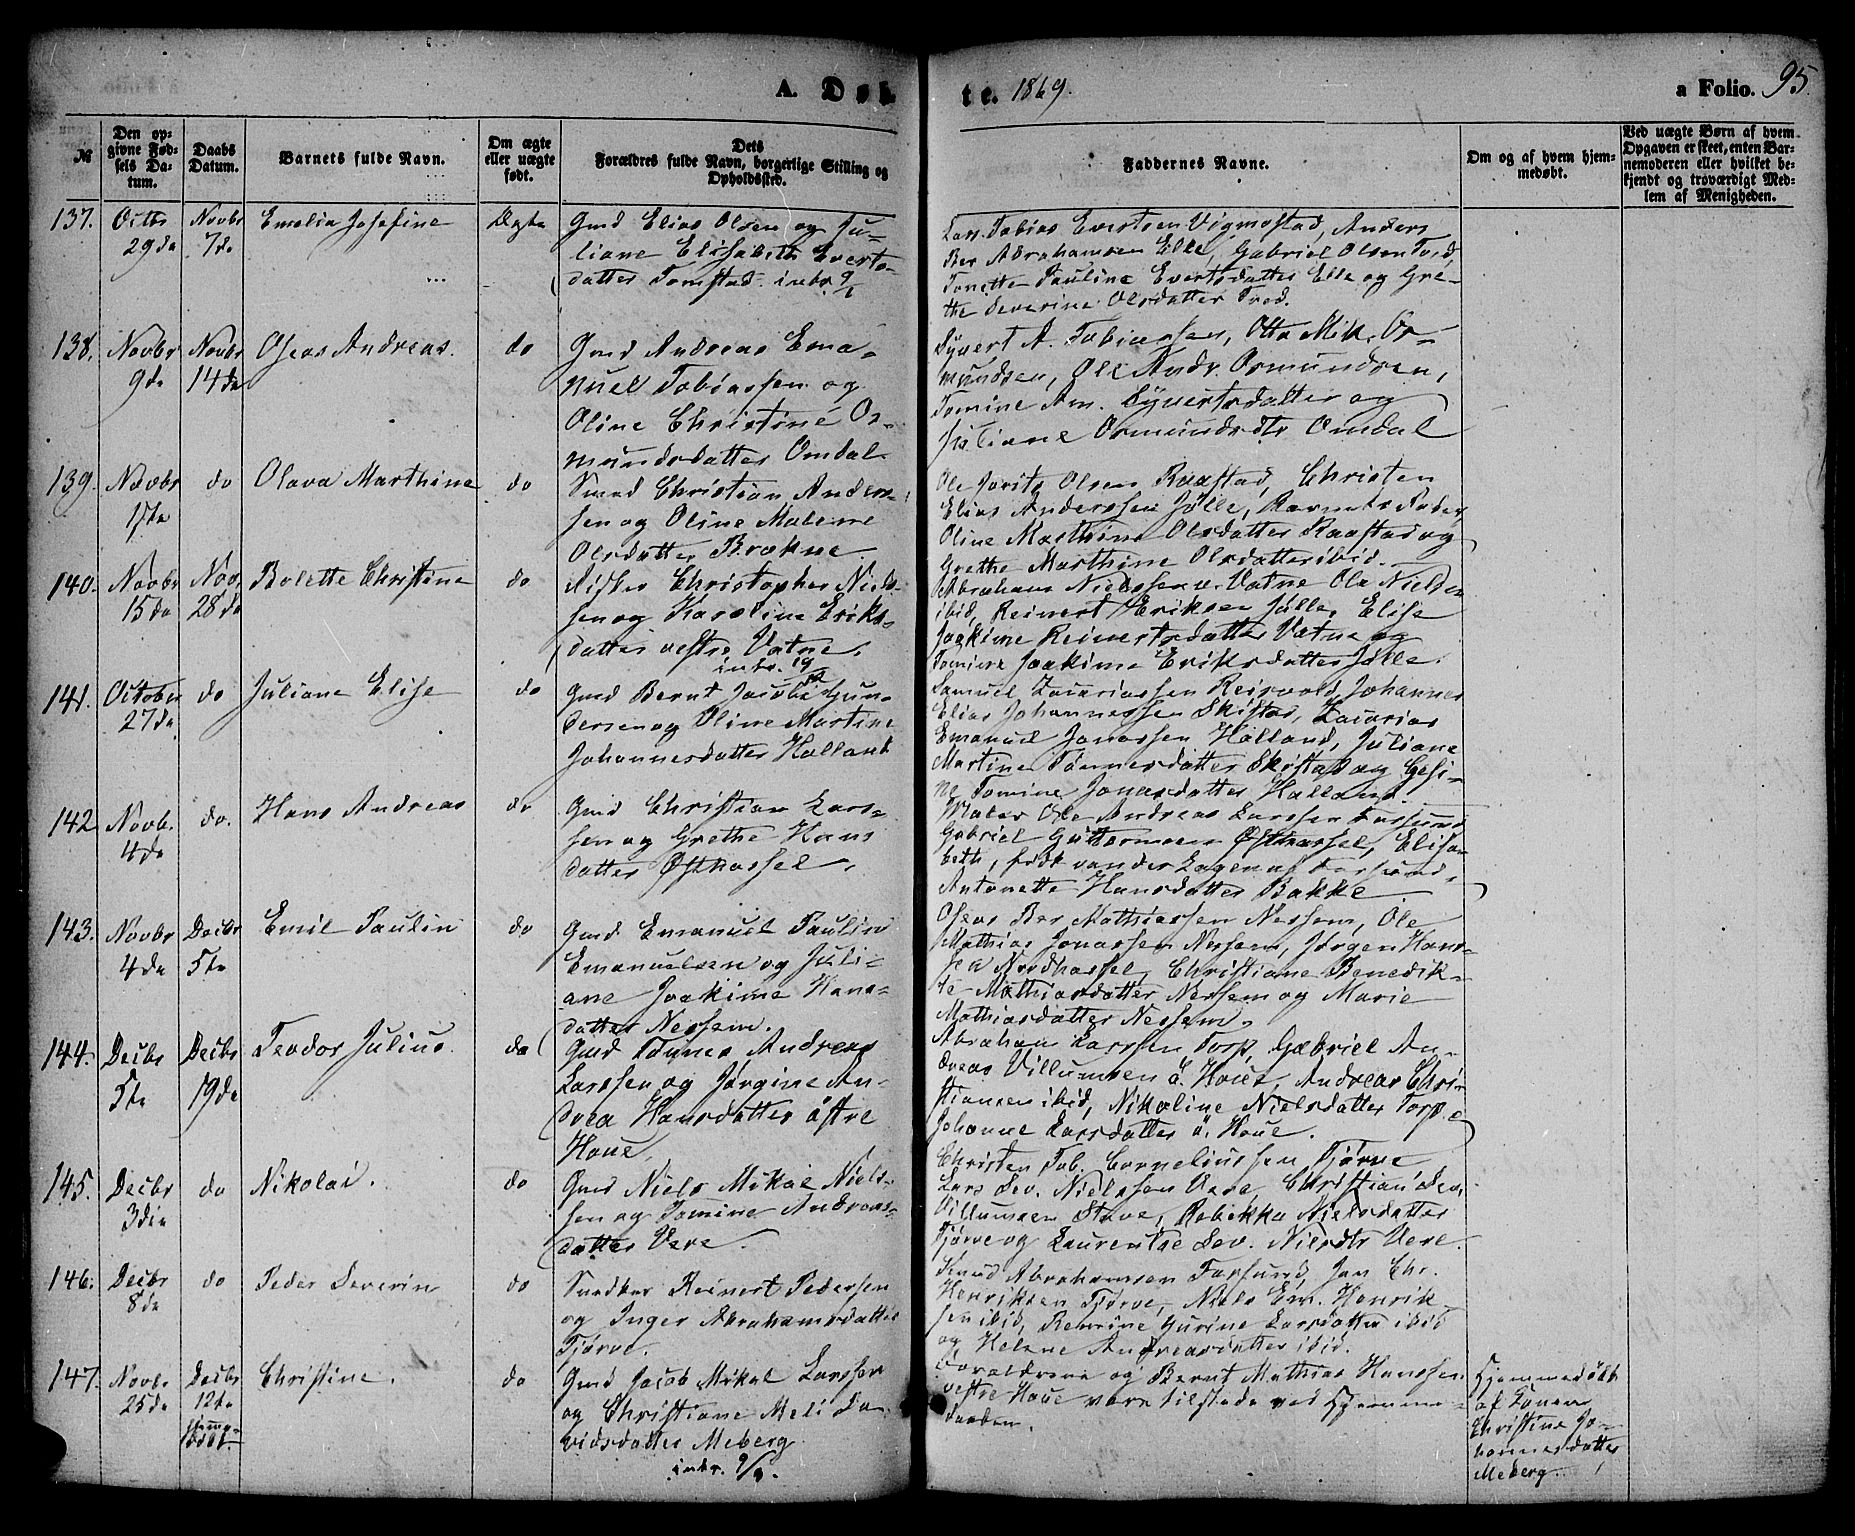 A. Døb-
te. 1869.
a Folio. 95.
№
Den op-
givne Fød-
sels Da-
tum.
Daabs
Datum.
Barnets fulde Navn.
Om ægte
eller uægte
født.
Dets
Forældres fulde Navn, borgerlige Stilling og
Opholdssted.
Faddernes Navne.
Om og af hvem hjem-
medøbt.
Ved uægte Børn af hvem
Opgaven er skeet, enten Bar-
nemoderen eller hvilket be-
kjendt og troværdigt Med-
lem af Menigheden.
137. Octbr 29de
Novbr 7de
Emelia Josefine
Ægte
Gmd Elias Olsen og Ju-
liane Elisabeth Everts-
datter Tomstad. intr. 9/1
Lars Tobias Evertsen Vigmostad, Anders
Ber Abrahamsen Elle, Gabriel Olsen Tved,
Tonette Pauline Evertsdatter Elle og Gre-
the Severine Olsdatter Tved.
138. Novbr 9de
Novbr 14de
Oseas Andreas.
do
Gmd Andreas Ema-
nuel Tobiassen og
Oline Christine Os-
mundsdatter Omdal
Syvert A. Tobiassen, Otto Mik. Os-
mundsen, Ole Andr. Osmundsen,
Tomine Am. Syvertsdatter og
Juliane Osmundsdtr Omdal
139. Novbr 1ste
do
Olava Marthine
do
Smed Christian Anders-
sen og Oline Malene
Olsdatter Brækne
Ole Jorits Olsen Raastad, Christen
Elias Anderssen Jølle, Barnets Fader,
Oline Marthine Olsdatter Raastad og
Grethe Marthine Olsdatter ibid.
140. Novbr 15de
Nov. 28de
Bolette Christine
do
Fisker Christopher Niels-
sen og Karoline Eriks-
datter vestre Vatne.
intr. 19/12
Abraham Nielssen v. Vatne Ole Nielsen
ibid, Reinert Eriksen Jølle, Elise
Joakime Reinertsdatter Vatne og
Tomine Joakime Eriksdatter Jølle.
141. October 27de
do
Juliane Elise
do
Gmd Bernt Jacob Gun-
dersen og Oline Martine
Johannesdatter Halland
Samuel Zacariassen Reisvold, Johannes
Elias Johannessen Skistad, Zacarias
Emanuel Jonassen Halland, Juliane
Martine Tønnesdatter Skistad og Gesi-
ne Tomine Jonasdatter Halland.
142 Novb. 4de
do.
Hans Andreas
do
Gmd Christian Lars-
sen og Grethe Hans
datter Østhassel.
Maler Ole Andreas Larssen Farsund
Gabriel Guttormsen Østhassel, Elisa-
beth, født van der Lagen af Farsund,
Antonette Hansdatter Bakke.
143. Novbr 4de
Decbr 5te
Emil Paulin
do
Gmd. Emanuel Paulin
Emanuelsen og Juli-
ane Joakime Hans-
datter Nessem.
Oseas Ber Mathiassen Nessem, Ole
Mathias Jonassen Nessem, Jørgen Hans-
sen Nordhassel, Christiane Benedik-
te Mathiasdatter Nessem og Marie
Mathiasdatter Nessem.
144. Decbr 5te
Decbr 19de
Teodor Julius
do
Gmd Tønnes Andreas
Larssen og Jørgine An-
drea Hansdatter østre
Houe.
Abraham Larssen Torp, Gabriel An-
dreas Villumsen ö. Houe, Andreas Chri-
stiansen ibid, Nikoline Nielsdatter Torp o
Johanne Larsdatter ö. Houe.
145. Decbr 3die
do
Nikolai.
do
Gmd Niels Mikal Niels-
sen og Tomine Andreas-
datter Vere.
Christen Tob. Corneliussen Tjørve
Lars Sev. Nielssen Vere, Christian Sev.
Villumsen Stave, Rebekka Nielsdatter
Tjørve og Laurentze Sev. Nielsdtr Vere.
146. Decbr 8de
do
Peder Severin
do
Snedker Reinert Pedersen
og Inger Abrahamsdatter
Tjørve.
Knud Abrahamsen Farsund, Jan Chr.
Henriksen Tjørve, Niels Em. Henrik-
sen ibid, Remine Gurine Larsdatter ibid
og Helene Andreasdatter ibid.
147. Novbr 25de
Decbr 12te
hjemme-
døbt
Christine.
do
Gmd Jacob Mikal Larssen
og Christiane Meli Da-
vidsdatter Meberg
intr. 9/1.
Forældrene og Bernt Mathias Hanssen
vestre Houe vare tilstede ved Hjemme-
daaben.
Hjemmedøbt
af Konen
Christine Jo-
hannesdatter
Meberg.